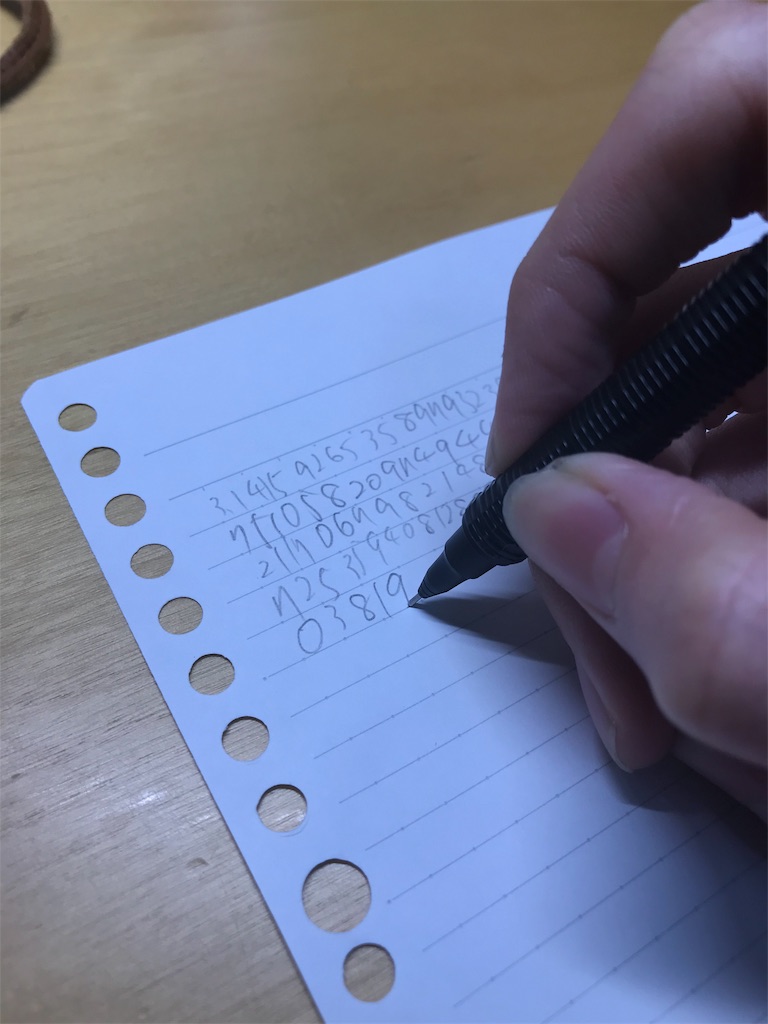 3.14159265358979323
75105820974944
2117067982148
725359408128
03819